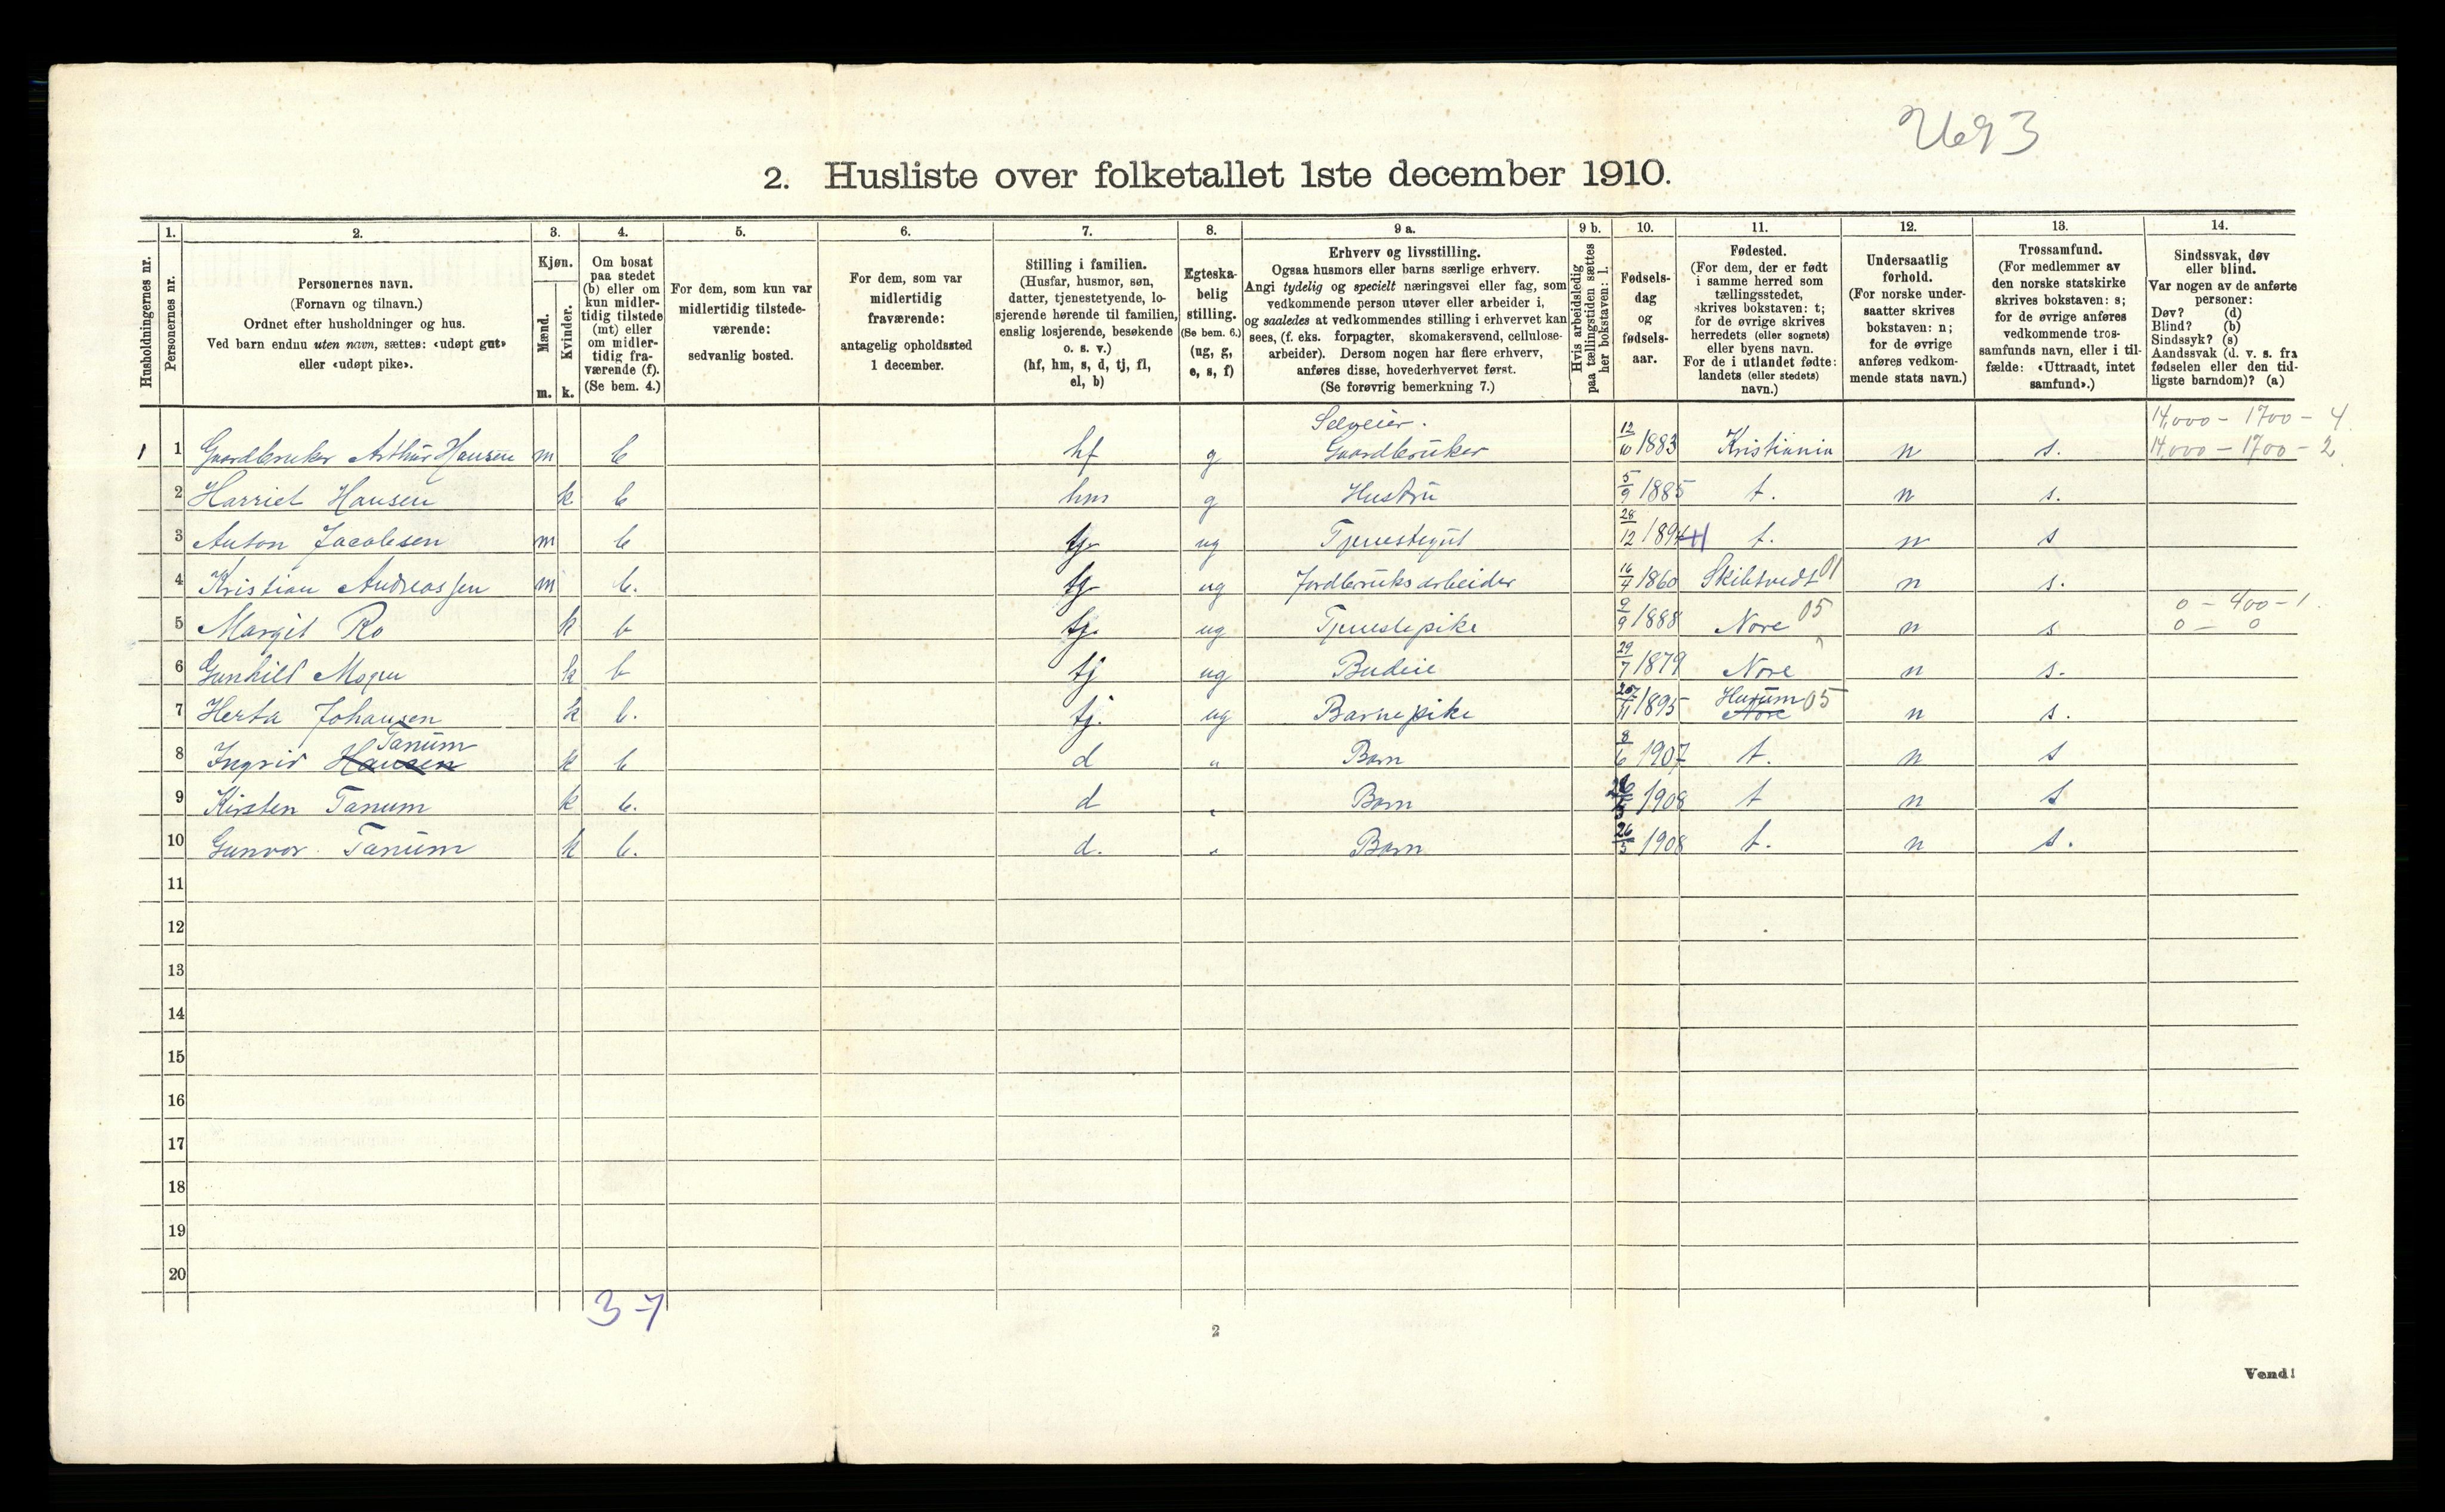 2. Husliste over folketallet 1ste december 1910.
Husholdningernes nr.
1.
Personernes nr.
2.
Personernes navn.
(Fornavn og tilnavn.)
Ordnet efter husholdninger og hus.
Ved barn endnu uten navn, sættes: «udøpt gut»
eller «udøpt pike».
3.
Kjøn.
Mænd.
m.
Kvinder.
k.
4.
Om bosat
paa stedet
(b) eller om
kun midler-
tidig tilstede
(mt) eller
om midler-
tidig fra-
værende (f).
(Se bem. 4.)
5.
For dem, som kun var
midlertidig tilstede-
værende:
sedvanlig bosted.
6.
For dem, som var
midlertidig
fraværende:
antagelig opholdssted
1 december.
7.
Stilling i familien.
(Husfar, husmor, søn,
datter, tjenestetyende, lo-
sjerende hørende til familien,
enslig losjerende, besøkende
o. s. v.)
(hf, hm, s, d, tj, fl,
el, b)
8.
Egteska-
belig
stilling.
(Se bem. 6.)
(ug, g,
e, s, f)
9 a.
Erhverv og livsstilling.
Ogsaa husmors eller barns særlige erhverv.
Angi tydelig og specielt næringsvei eller fag, som
vedkommende person utøver eller arbeider i,
og saaledes at vedkommendes stilling i erhvervet kan
sees, (f. eks. forpagter, skomakersvend, cellulose-
arbeider). Dersom nogen har flere erhverv,
anføres disse, hovederhvervet først.
(Se forøvrig bemerkning 7.)
9 b.
Hvis arbeidsledig
paa tællingstiden sættes
her bokstaven: l.
10.
Fødsels-
dag
og
fødsels-
aar.
11.
Fødested.
(For dem, der er født
i samme herred som
tællingsstedet,
skrives bokstaven: t;
for de øvrige skrives
herredets (eller sognets)
eller byens navn.
For de i utlandet fødte:
landets (eller stedets)
navn.)
12.
Undersaatlig
forhold.
(For norske under-
saatter skrives
bokstaven: n;
for de øvrige
anføres vedkom-
mende stats navn.)
13.
Trossamfund.
(For medlemmer av
den norske statskirke
skrives bokstaven: s;
for de øvrige anføres
vedkommende tros-
samfunds navn, eller i til-
fælde: «Uttraadt, intet
samfund».)
14.
Sindssvak, døv
eller blind.
Var nogen av de anførte
personer:
Døv? (d)
Blind? (b)
Sindssyk? (s)
Aandssvak (d. v. s. fra
fødselen eller den tid-
ligste barndom)? (a)
Selveier. 14,000 - 1700 - 4
1 1 Gaardbruker Arthur Hansen m b hf g Gaardbruker 12/10 1883 Kristiania n s. 14,000 - 1700 - 2
2 Harriet Hansen k b hm g Hustru 5/9 1885 t. n s.
3 Anton Jacobsen m b tj ug Tjenestegut 28/12 1894 t. n s
4 Kristian Andreassen m b. tj ug Jordbruksarbeider 16/4 1860 Skibtvedt 01 n s.
0 - 400 - 1
5 Margit Ro k b tj. ug Tjenestepike 9/9 1888 Nore 05 n s 0 - 0
6 Gunhild Mogen k b tj ug Budeie 29/7 1879 Nore n s.
Hurum 05
7 Herta Johansen k b. tj. ug Barnepike 11 1895 Nore n s.
Tanum
8 Ingrid Hansen k b d " Barn 8/6 1907 t. n s
9 Kirsten Tanum k b. d " Barn 26/5 1908 t n s
10 Gunvor Tanum k b. d. " Barn 26/5 1908 t. n s.
11
12
13
14
15
16
17
18
19
20
3-7
2
Vend!